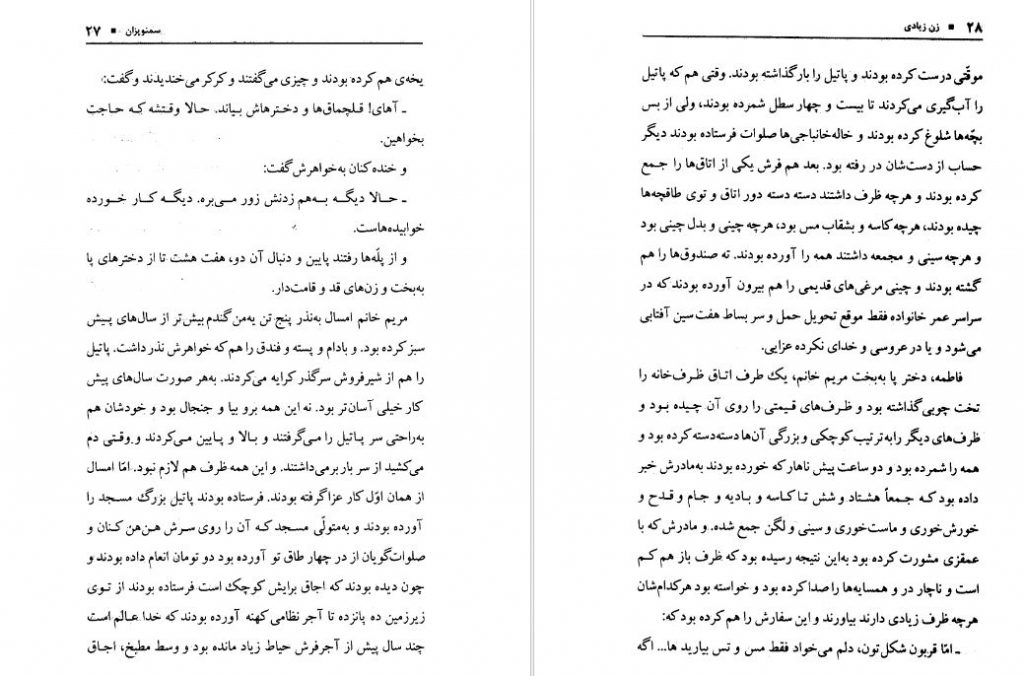 سمنوپزان ■ ۲۷
یخه‌ی هم کرده بودند و چیزی می‌گفتند و کرکر می‌خندیدند و گفت:
ـ آهای! قلچماق‌ها و دخترهاش بیاند. حالا وقتشه که حاجت
بخواهین.
و خنده کنان به‌خواهرش گفت:
ـ حالا دیگه به‌هم زدنش زور می‌بره. دیگه کار خورده
خوابیده‌هاست.
و از پلّه‌ها رفتند پایین و دنبال آن دو، هفت هشت تا از دخترهای پا
به‌بخت و زن‌های قد و قامت‌دار.
مریم خانم امسال به‌نذر پنج تن یه‌من گندم بیش‌تر از سال‌های پیش
سبز کرده بود. و بادام و پسته و فندق را هم که خواهرش نذر داشت. پاتیل
را هم از شیرفروش سرگذر کرایه می‌کردند. به‌هر صورت سال‌های پیش
کار خیلی آسان‌تر بود. نه این همه برو بیا و جنجال بود و خودشان هم
به‌راحتی سر پاتیل را می‌گرفتند و بالا و پایین می‌کردند و وقتی دم
می‌کشید از سر بار برمی‌داشتند. و این همه ظرف هم لازم نبود. امّا امسال
از همان اوّل کار عزا گرفته بودند. فرستاده بودند پاتیل بزرگ مسجد را
آورده بودند و به‌متولّی مسجد که آن را روی سرش هن‌هن کنان و
صلوات‌گویان از در چهار طاق تو آورده بود دو تومان انعام داده بودند و
چون دیده بودند که اجاق برایش کوچک است فرستاده بودند از توی
زیرزمین ده پانزده تا آجر نظامی کهنه آورده بودند که خدا عالم است
چند سال پیش از آجرفرش حیاط زیاد مانده بود و وسط مطبخ، اجاق
۲۸ ■ زن زیادی
موقّتی درست کرده بودند و پاتیل را بار گذاشته بودند. وقتی هم که پاتیل
را آب‌گیری می‌کردند تا بیست و چهار سطل شمرده بودند، ولی از بس
بچّه‌ها شلوغ کرده بودند و خاله‌خانباجی‌ها صلوات فرستاده بودند دیگر
حساب از دست‌شان در رفته بود. بعد هم فرش یکی از اتاق‌ها را جمع
کرده بودند و هرچه ظرف داشتند دسته دسته دور اتاق و توی طاقچه‌ها
چیده بودند، هرچه کاسه و بشقاب مس بود، هرچه چینی و بدل چینی بود
و هرچه سینی و مجمعه داشتند همه را آورده بودند. ته صندوق‌ها را هم
گشته بودند و چینی مرغی‌های قدیمی را هم بیرون آورده بودند که در
سراسر عمر خانواده فقط موقع تحویل حمل و سر بساط هفت‌سین آفتابی
می‌شود و یا در عروسی و خدای نکرده عزایی.
فاطمه، دختر پا به‌بخت مریم خانم، یک طرف اتاق ظرف‌خانه را
تخت چوبی گذاشته بود و ظرف‌های قیمتی را روی آن چیده بود و
ظرف‌های دیگر را به‌ترتیب کوچکی و بزرگی آن‌ها دسته‌دسته کرده بود و
همه را شمرده بود و دو ساعت پیش ناهار که خورده بودند به‌مادرش خبر
داده بود که جمعاً هشتاد و شش تا کاسه و بادیه و جام و قدح و
خورش‌خوری و ماست‌خوری و سینی و لگن جمع شده. و مادرش که با
عمقزی مشورت کرده بود به‌این نتیجه رسیده بود که ظرف باز هم کم
است و ناچار در و همسایه‌ها را صدا کرده بود و خواسته بود هرکدام‌شان
هرچه ظرف زیادی دارند بیاورند و این سفارش را هم کرده بود که:
ـ امّا قربون شکل‌تون، دلم می‌خواد فقط مس و تس بیارید ها... اگه